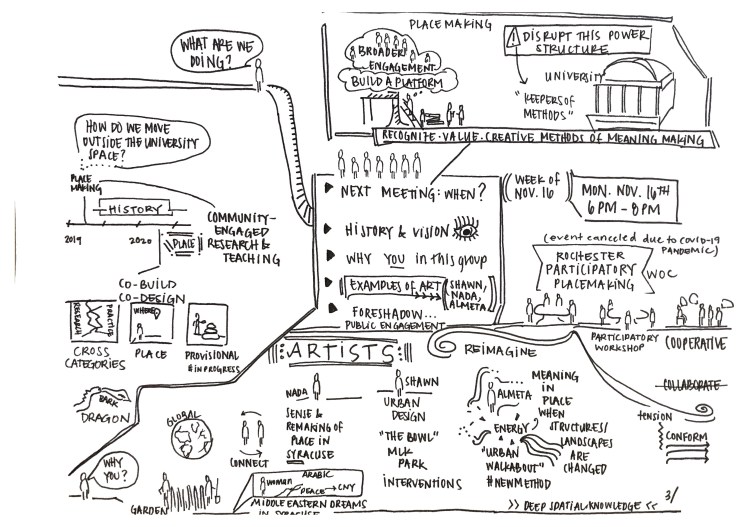 WHAT ARE WE
DOING?
HOW DO WE MOVE
OUTSIDE THE UNIVERSITY
SPACE?
PLACE
MAKING
HISTORY
2019
2020
PLACE
COMMUNITY-
ENGAGED
RESEARCH &
TEACHING
CO-BUILD
CO-DESIGN
RESEARCH
PRACTICE
CROSS
CATEGORIES
WHERE?
PLACE
PROVISIONAL
#INPROGRESS
PLACE MAKING
BROADER
ENGAGEMENT
BUILD A PLATFORM
DISRUPT THIS POWER
STRUCTURE
UNIVERSITY
"KEEPERS OF
METHODS"
RECOGNIZE · VALUE · CREATIVE METHODS OF MEANING MAKING
NEXT MEETING: WHEN?
HISTORY & VISION
WHY YOU in this group
EXAMPLES OF ART
SHAWN,
NADA,
ALMETA
FORESHADOW...
PUBLIC ENGAGEMENT
WEEK OF
NOV. 16
MON. NOV. 16TH
6PM - 8PM
(event canceled due to covid-19
PANDEMIC)
ROCHESTER
PARTICIPATORY
PLACEMAKING
WOC
PARTICIPATORY
WORKSHOP
COOPERATIVE
COLLABORATE
tension
CONFORM
ARTISTS
REIMAGINE
BARK
DRAGON
GLOBAL
CONNECT
WHY
YOU?
GARDEN
NADA
SENSE &
REMAKING OF
PLACE IN
SYRACUSE
woman
ARABIC
PEACE
CNY
MIDDLE EASTERN DREAMS
IN SYRACUSE
SHAWN
URBAN
DESIGN
"THE BOWL"
MLK
PARK
INTERVENTIONS
ALMETA
ENERGY
"URBAN
WALKABOUT"
#NEWMETHOD
MEANING
IN
PLACE
WHEN
STRUCTURES/
LANDSCAPES
ARE
CHANGED
>> DEEP SPATIAL KNOWLEDGE <<
3/